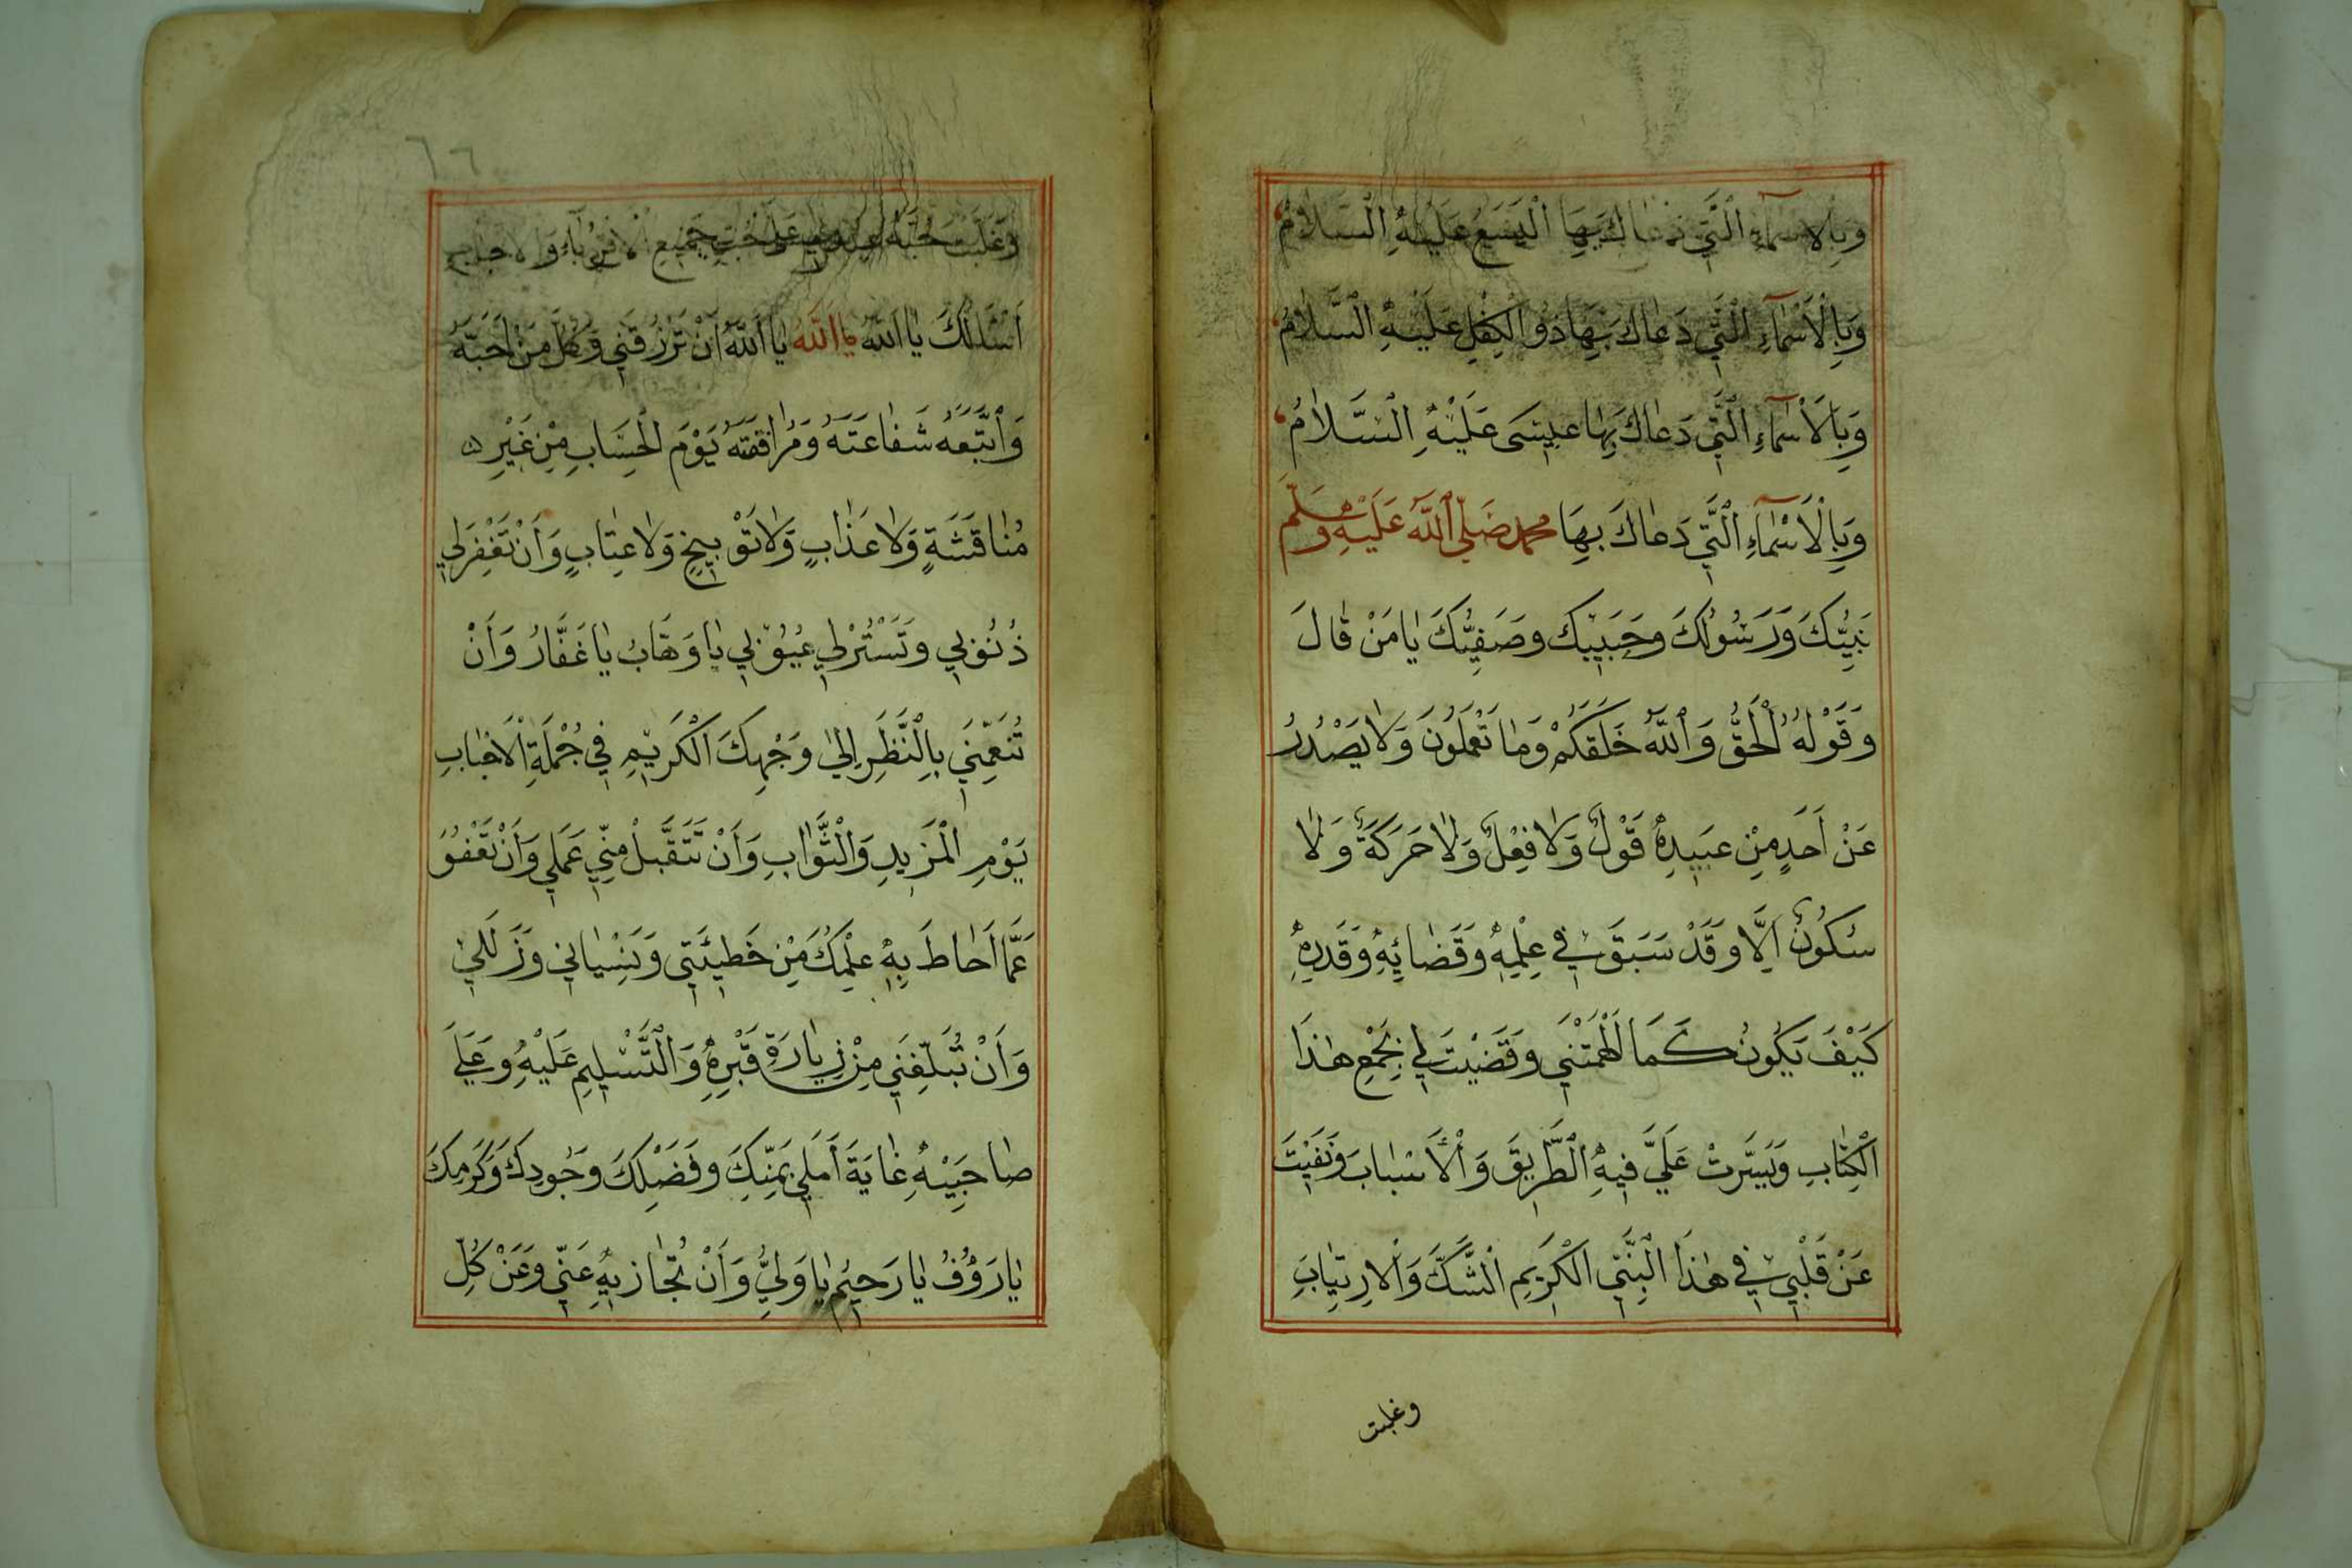 وَبِالْاَسْمَآءِ الَّتِي دَعَاكَ بِهَا الْيَسَعُ عَلَيْهِ الْسَّلَامُ
وَبِالْاَسْمَآءِ الَّتِي دَعَاكَ بِهَا ذُو الْكِفْلِ عَلَيْهِ السَّلَامُ
وَبِالْاَسْمَآءِ الَّتِي دَعَاكَ بِهَا عِيسَى عَلَيْهِ السَّلَامُ
وَبِالْاَسْمَآءِ الَّتِي دَعَاكَ بِهَا محمد صَلَّى اللّٰهُ عَلَيْهِ وَسَلَّمَ
نَبِيُّكَ وَرَسُولُكَ وَحَبِيبُكَ وَصَفِيُّكَ يَا مَنْ قَالَ
وَقَوْلُهُ الْحَقُّ وَاللّٰهُ خَلَقَكُمْ وَمَا تَعْمَلُونَ وَلَا يَصْدُرُ
عَنْ اَحَدٍ مِنْ عَبِيدِهِ قَوْلٌ وَلَا فِعْلٌ وَلَا حَرَكَةٌ وَلَا
سُكُونٌ اِلَّا وَقَدْ سَبَقَ فِي عِلْمِهِ وَقَضَائِهِ وَقَدَرِهِ
كَيْفَ يَكُونُ كَمَا اَلْهَمْتَنِي وَقَضَيْتَ لِي بِجَمْعِ هٰذَا
الْكِتَابِ وَيَسَّرْتَ عَلَيَّ فِيهِ الطَّرِيقَ وَالْأَسْبَابَ وَنَفَيْتَ
عَنْ قَلْبِي فِي هٰذَا النَّبِيِّ الْكَرِيمِ الْشَّكَّ وَالْاِرْتِيَابَ
وغلبت
٦٦
وَغَلَّبْتَ حُبَّهُ عِنْدِي عَلَى حُبِّ جَمِيعِ الْاَقْرِبَآءِ وَالْاَحِبَّآءِ
اَسْئَلُكَ يَا اَللّٰهُ يَا اَللّٰهُ يَا اَللّٰهُ اَنْ تَرْزُقَنِي وَكُلَّ مَنْ اَحَبَّهُ
وَاتَّبَعَهُ شَفَاعَتَهُ وَمُرَافَقَتَهُ يَوْمَ الْحِسَابِ مِنْ غَيْرِ
مُنَاقَشَةٍ وَلَا عَذَابٍ وَلَا تَوْبِيخٍ وَلَا عِتَابٍ وَاَنْ تَغْفِرَ لِي
ذُنُوبِي وَتَسْتُرْ لِي عُيُوبِي يَا وَهَّابُ يَا غَفَّارُ وَاَنْ
تُنَعِّمَنِي بِالْنَّظَرِ اِلَى وَجْهِكَ الْكَرِيمِ فِي جُمْلَةِ الْاَحْبَابِ
يَوْمِ الْمَزِيدِ وَالْثَّوَابِ وَاَنْ تَتَقَبَّلَ مِنِّي عَمَلِي وَاَنْ تَعْفُوَ
عَمَّا اَحَاطَ بِهِ عِلْمُكَ مِنْ خَطِيئَتِي وَنِسْيَانِي وَزَلَلِي
وَاَنْ تُبَلِّغَنِي مِنْ زِيَارَةِ قَبْرِهِ وَالْتَّسْلِيمِ عَلَيْهِ وَعَلَى
صَاحِبَيْهِ غَايَةَ أَمَلِي بِمَنِّكَ وَفَضْلِكَ وَجُودِكَ وَكَرَمِكَ
يَا رَؤُفُ يَا رَحِيمُ يَا وَلِيُّ وَاَنْ تُجَازِيهِ عَنِّي وَعَنْ كُلِّ